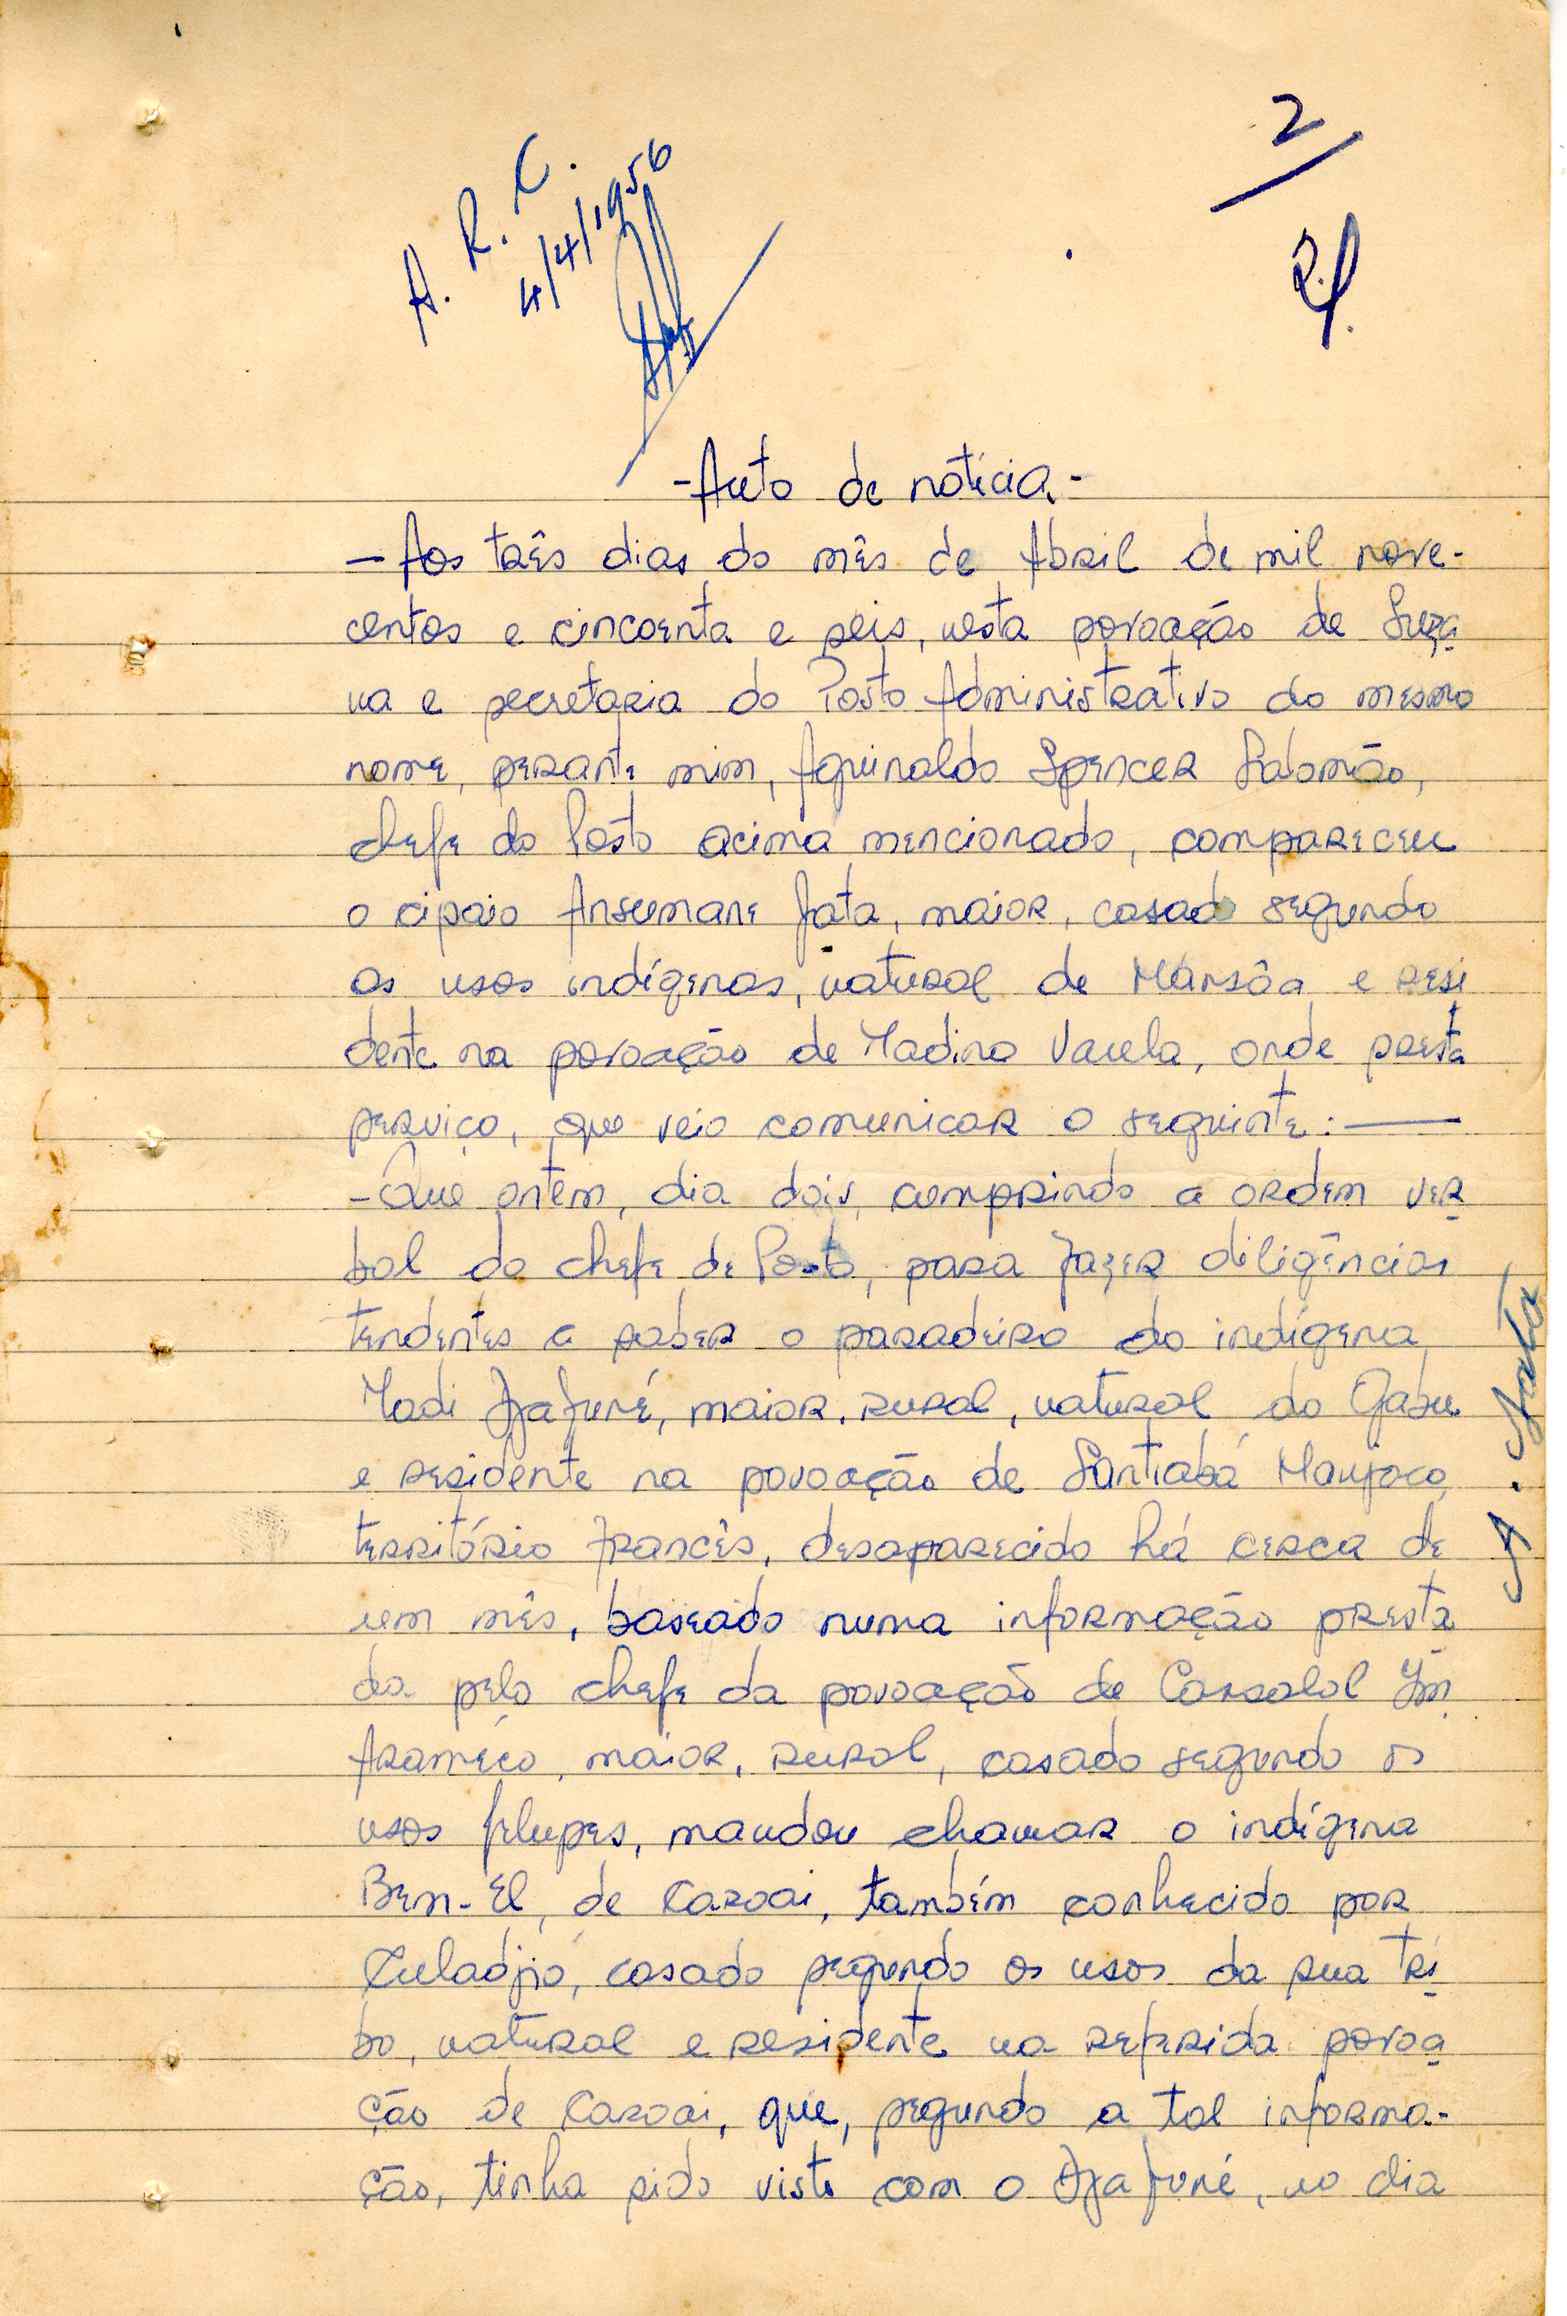 2
A. R. C.
4/4/1956
R.
- Auto de notícia. -
- Aos três dias do mês de Abril de mil nove-
centos e cincoenta e seis, nesta povoação de Suza
na e secretaria do Posto Administrativo do mesmo
nome, perante mim, Aguinaldo Spencer Salomão,
chefe do Posto acima mencionado, compareceu
o cipaio Ansumane Jata, maior, casado segundo
os usos indígenas, natural de Mansôa e resi
dente na povoação de Madina Varela, onde presta
serviço, que veio comunicar o seguinte: ——
- Que ontem, dia dois, cumprindo a ordem ver
bal do chefe de Posto, para fazer diligências
tendentes a saber o paradeiro do indígena
Madi Djafuné, maior, rural, natural do Gabu
e residente na povoação de Santiabá Manjaco,
território francês, desaparecido há cerca de
um mês, baseado numa informação presta
da pelo chefe da povoação de Cassolol
Araméco, maior, rural, casado segundo os
usos felupes, mandou chamar o indígena
Bem-El, de Caroai, também conhecido por
Culadjió, casado segundo os usos da sua tri
bo, natural e residente na referida povoa
ção de Caroai, que, segundo a tal informa-
ção, tinha sido visto com o Djafuné, no dia
A. Jata